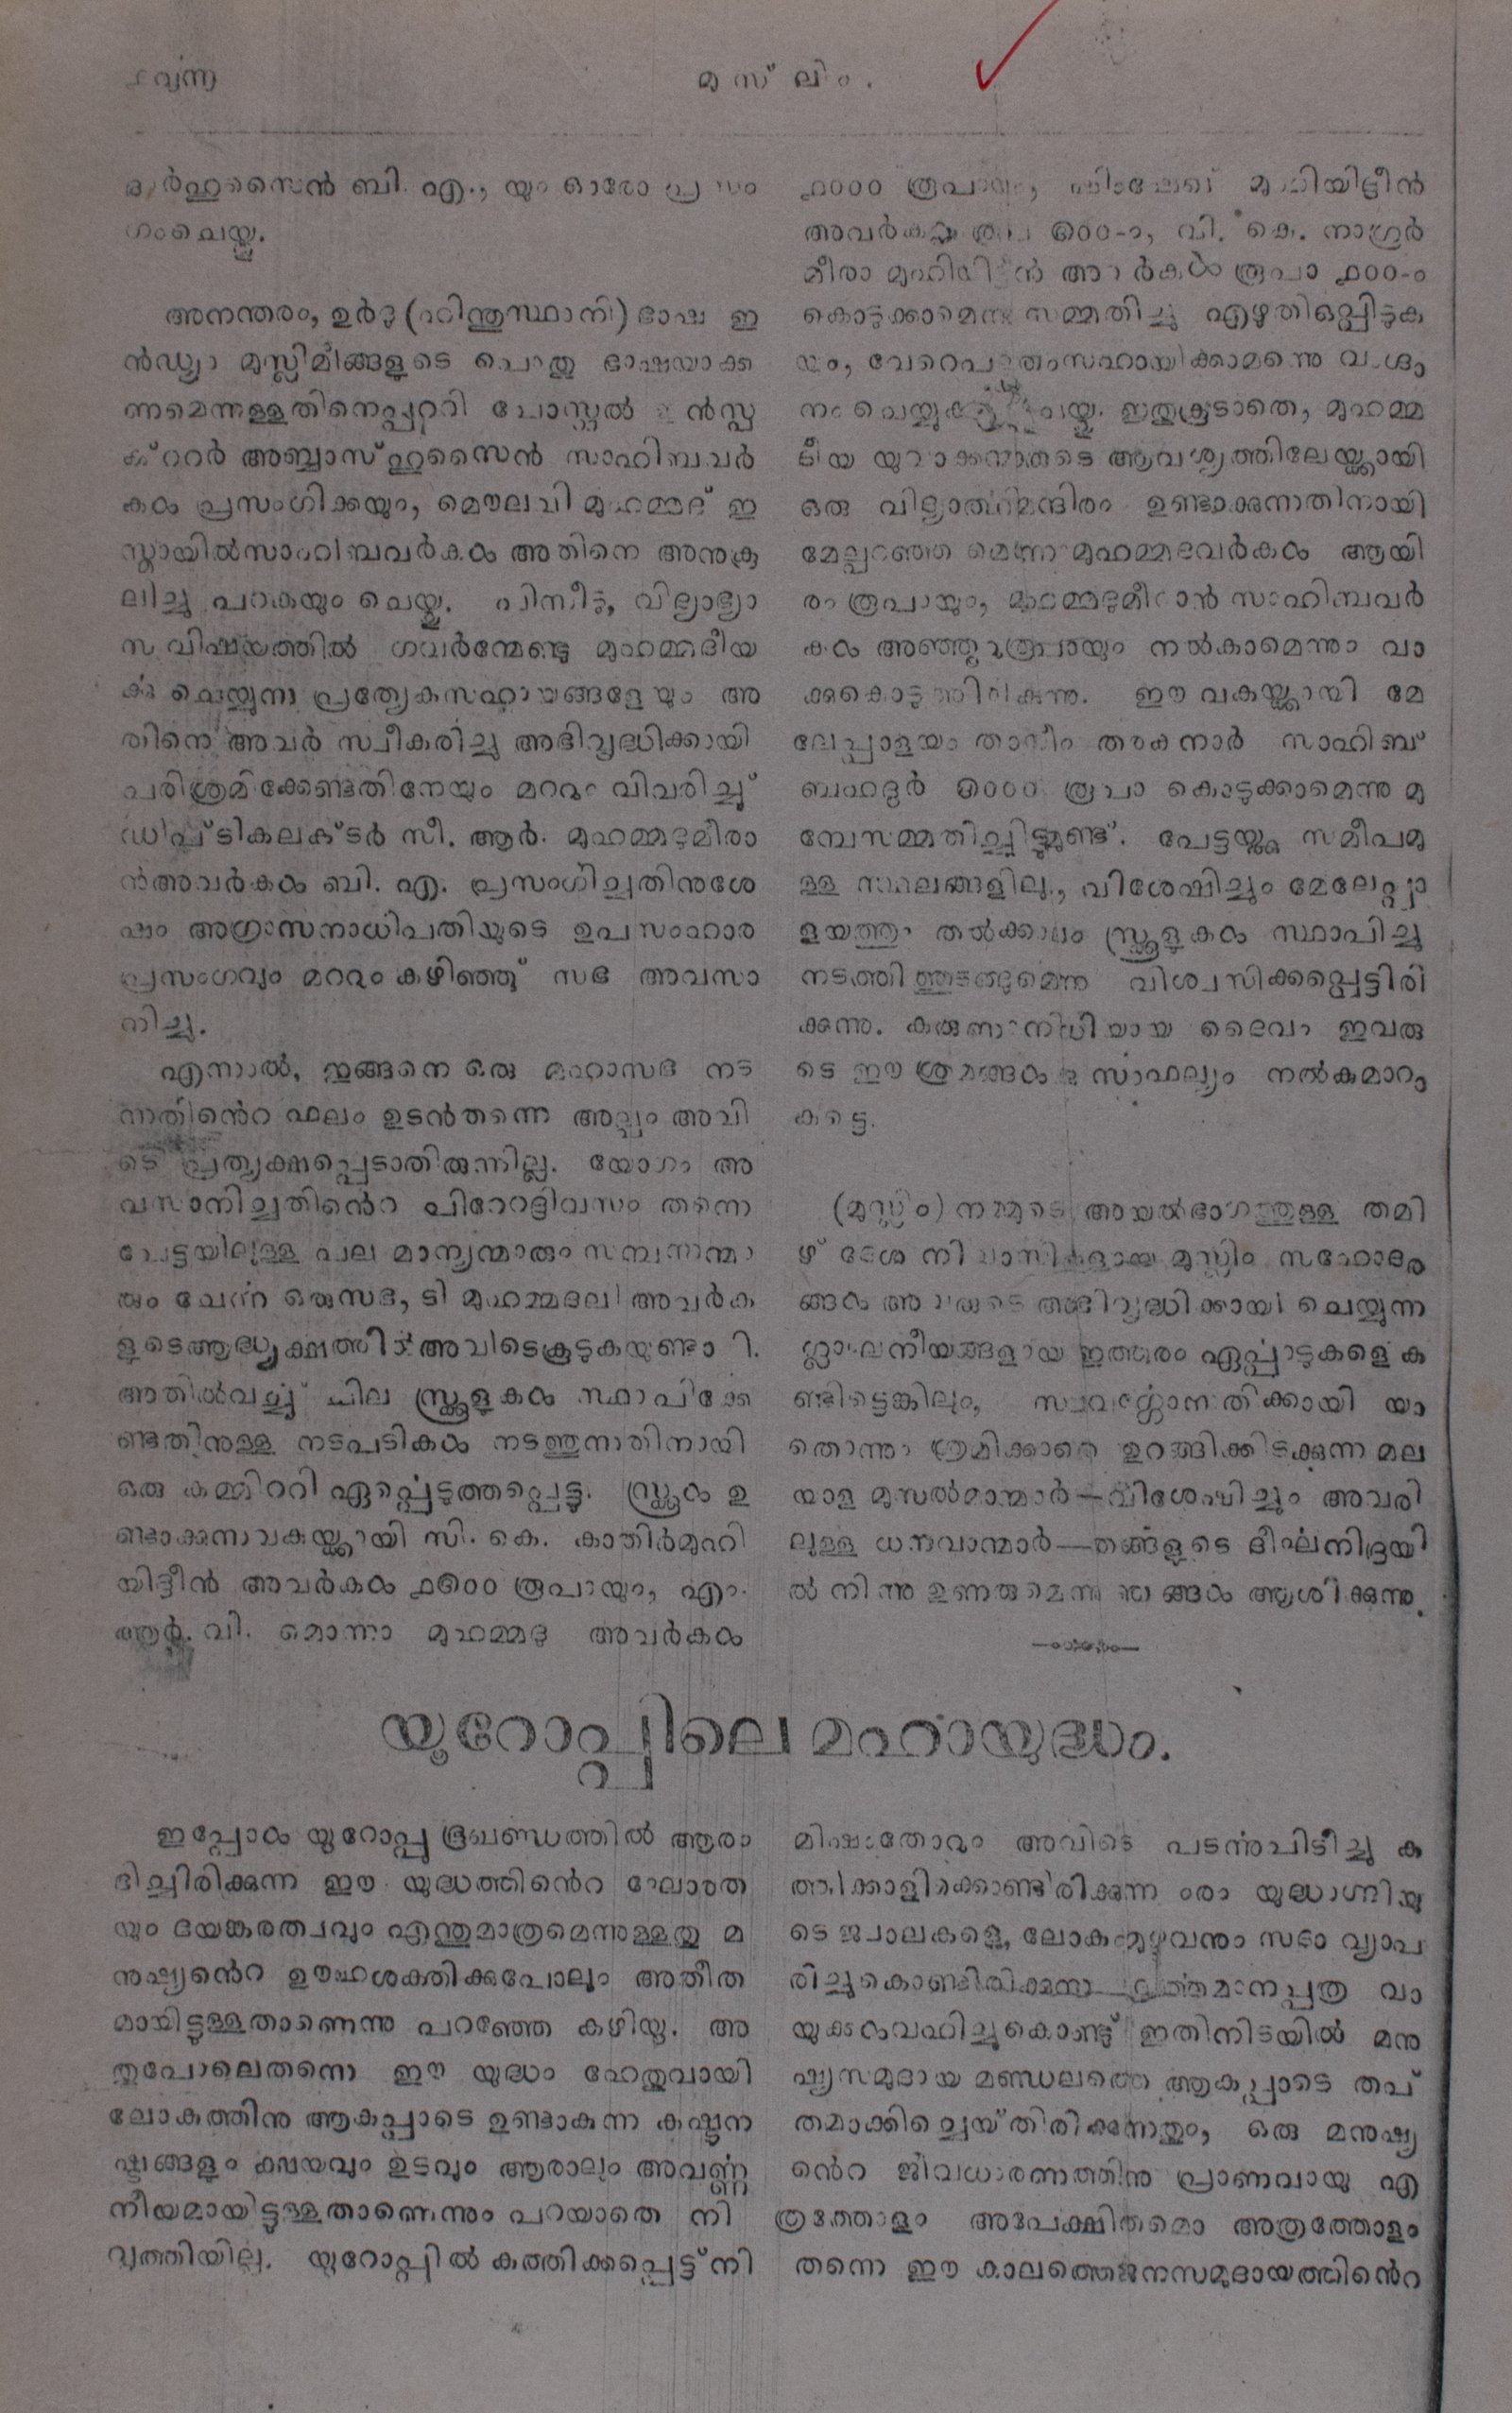 മുസ്ലിം.
ർഹുസൈൻ ബി. എ., യും ഓരോ പ്രസം
ഗംചെയ്തു.
അനന്തരം, ഉർദു (ഹിന്തുസ്ഥാനി) ഭാഷ ഇ
ൻഡ്യാ മുസ്ലിമീങ്ങളുടെ പൊതു ഭാഷയാക്ക
ണമെന്നുള്ളതിനെപ്പററി പോസ്റ്റൽ ഇൻസ്പ
ക്ററർ അബ്ബാസ്ഹുസൈൻ സാഹിബവർ
കൾ പ്രസംഗിക്കയും, മൌലവി മുഹമ്മദ് ഇ
സ്മായിൽസാഹിബവർകൾ അതിനെ അനുകൂ
ലിച്ചു പറകയും ചെയ്തു. പിന്നീടു, വിദ്യാഭ്യാ
സ വിഷയത്തിൽ ഗവർന്മേണ്ടു മുഹമ്മദീയ
ക്കു ചെയ്യുന്ന പ്രത്യേകസഹായങ്ങളേയും അ
തിനെ അവർ സ്വീകരിച്ചു അഭിവൃദ്ധിക്കായി
പരിശ്രമിക്കേണ്ടതിനേയും മററും വിവരിച്ച്
ഡിപ്ടികലക്ടർ സീ. ആർ. മുഹമ്മദുമീരാ
ൻഅവർകൾ ബി. എ. പ്രസംഗിച്ചതിനുശേ
ഷം അഗ്രാസനാധിപതിയുടെ ഉപസംഹാര
പ്രസംഗവും മററും കഴിഞ്ഞ് സഭ അവസാ
നിച്ചു.
എന്നാൽ, ഇങ്ങനെ ഒരു മഹാസഭ നട
ന്നതിൻെറ ഫലം ഉടൻതന്നെ അല്പം അവി
ടെ പ്രത്യക്ഷപ്പെടാതിരുന്നില്ല. യോഗം അ
വസാനിച്ചതിൻെറ പിറേറദ്ദിവസം തന്നെ
പേട്ടയിലുള്ള പല മാന്യന്മാരും സമ്പന്നന്മാ
രും ചേർന്ന ഒരുസഭ, ടി മുഹമ്മദലി അവർക
ളുടെആദ്ധ്യക്ഷത്തിൽ അവിടെകൂടുകയുണ്ടായി.
അതിൽവച്ച് ചില സ്ക്കൂളുകൾ സ്ഥാപിക്കേ
ണ്ടതിനുള്ള നടപടികൾ നടത്തുന്നതിനായി
ഒരു കമ്മിററി ഏർപ്പെടുത്തപ്പെട്ടു. സ്ക്കൂൾ ഉ
ണ്ടാക്കുന്നവകയ്ക്കായി സി. കെ. കാതിർമുഹി
യിദ്ദീൻ അവർകൾ ൧൫൦൦ രൂപായും, എം.
ആർ. വി. മൊന്നാ മുഹമ്മദു അവർകൾ
൧൦൦൦ രൂപായും, മുഹിയിദ്ദീൻ
അവർകൾ രൂപ ൫൦൦-ം, വി. കെ. നാഗൂർ
മീരാ മുഹിയിദ്ദീൻ അവർകൾ രൂപാ ൧൦൦-ം
കൊടുക്കാമെന്നു സമ്മതിച്ചു എഴുതിഒപ്പിടുക
യും, വേറെപലരുംസഹായിക്കാമെന്നു വാഗ്ദാ
നം ചെയ്യുകയുംചെയ്തു. ഇതുകൂടാതെ, മുഹമ്മ
ദീയ യുവാക്കന്മാരുടെ ആവശ്യത്തിലേയ്ക്കായി
ഒരു വിദ്യാത്ഥിമന്ദിരം ഉണ്ടാക്കുന്നതിനായി
മേല്പറഞ്ഞ മൊന്നാ മുഹമ്മദവർകൾ ആയി
രം രൂപായും, മുഹമ്മദുമീരാൻ സാഹിബവർ
കൾ അഞ്ഞൂറുരൂപായും നൽകാമെന്നും വാ
ക്കുകൊടുത്തിരിക്കുന്നു. ഈ വകയ്ക്കായി മേ
ലേപ്പാളയം താസീം തരകനാർ സാഹിബ്
ബഹദൂർ ൫൦൦൦ രൂപാ കൊടുക്കാമെന്നു മു
മ്പേസമ്മതിച്ചിട്ടുമുണ്ട്. പേട്ടയ്ക്കു സമീപമു
ള്ള സ്ഥലങ്ങളിലും, വിശേഷിച്ചും മേലേപ്പാ
ളയത്തും തൽക്കാലം സ്ക്കൂളുകൾ സ്ഥാപിച്ചു
നടത്തി തുടങ്ങുമെന്നു വിശ്വസിക്കപ്പെട്ടിരി
ക്കുന്നു. കരുണാനിധിയായ ദൈവം ഇവരു
ടെ ഈ ശ്രമങ്ങൾക്കു സാഫല്യം നൽകുമാറാ
കട്ടെ.
(മുസ്ലിം) നമ്മുടെ അയൽഭാഗത്തുള്ള തമി
ഴ് ദേശ നിവാസികളായ മുസ്ലിം സഹോദര
ങ്ങൾ അവരുടെ അഭിവൃദ്ധിക്കായി ചെയ്യുന്ന
ശ്ലാഘനീയങ്ങളായ ഇത്തരം ഏർപ്പാടുകളെ ക
ണ്ടിട്ടെങ്കിലും, സ്വവർഗ്ഗോന്നതിക്കായി യാ
തൊന്നും ശ്രമിക്കാതെ ഉറങ്ങിക്കിടക്കുന്ന മല
യാള മുസൽമാന്മാർ—വിശേഷിച്ചും അവരി
ലുള്ള ധനവാന്മാർ—തങ്ങളുടെ ദീർഘനിദ്രയി
ൽ നിന്നു ഉണരുമെന്നു ഞങ്ങൾ ആശിക്കുന്നു.
യൂറോപ്പിലെ മഹായുദ്ധം.
ഇപ്പോൾ യൂറോപ്പു ഭൂഖണ്ഡത്തിൽ ആരം
ഭിച്ചിരിക്കുന്ന ഈ യുദ്ധത്തിൻെറ ഘോരത
യും ഭയങ്കരത്വവും എന്തുമാത്രമെന്നുള്ളതു മ
നുഷ്യൻെറ ഊഹശക്തിക്കുപോലും അതീത
മായിട്ടുള്ളതാണെന്നു പറഞ്ഞേ കഴിയൂ. അ
തുപോലെതന്നെ ഈ യുദ്ധം ഹേതുവായി
ലോകത്തിനു ആകപ്പാടെ ഉണ്ടാകുന്ന കഷ്ടന
ഷ്ടങ്ങളും ക്ഷയവും ഉടവും ആരാലും അവർണ്ണ
നീയമായിട്ടുള്ളതാണെന്നും പറയാതെ നി
വൃത്തിയില്ല. യൂറോപ്പിൽ കത്തിക്കപ്പെട്ട് നി
മിഷംതോറും അവിടെ പടർന്നുപിടിച്ചു ക
ത്തിക്കാളിക്കൊണ്ടിരിക്കുന്ന ഒരു യുദ്ധാഗ്നിയു
ടെ ജ്വാലകളെ, ലോകംമുഴുവനും സദാ വ്യാപ
രിച്ചുകൊണ്ടിരിക്കുന്ന വൃത്തമാനപ്പത്ര വാ
യുക്കൾവഹിച്ചുകൊണ്ട് ഇതിനിടയിൽ മനു
ഷ്യസമുദായ മണ്ഡലത്തെ ആകപ്പാടെ തപ്
തമാക്കിച്ചെയ്തിരിക്കുന്നതും, ഒരു മനുഷ്യ
ൻെറ ജീവധാരണത്തിനു പ്രാണവായു എ
ത്രത്തോളം അപേക്ഷിതമൊ അത്രത്തോളം
തന്നെ ഈ കാലത്തെജനസമുദായത്തിൻെറ